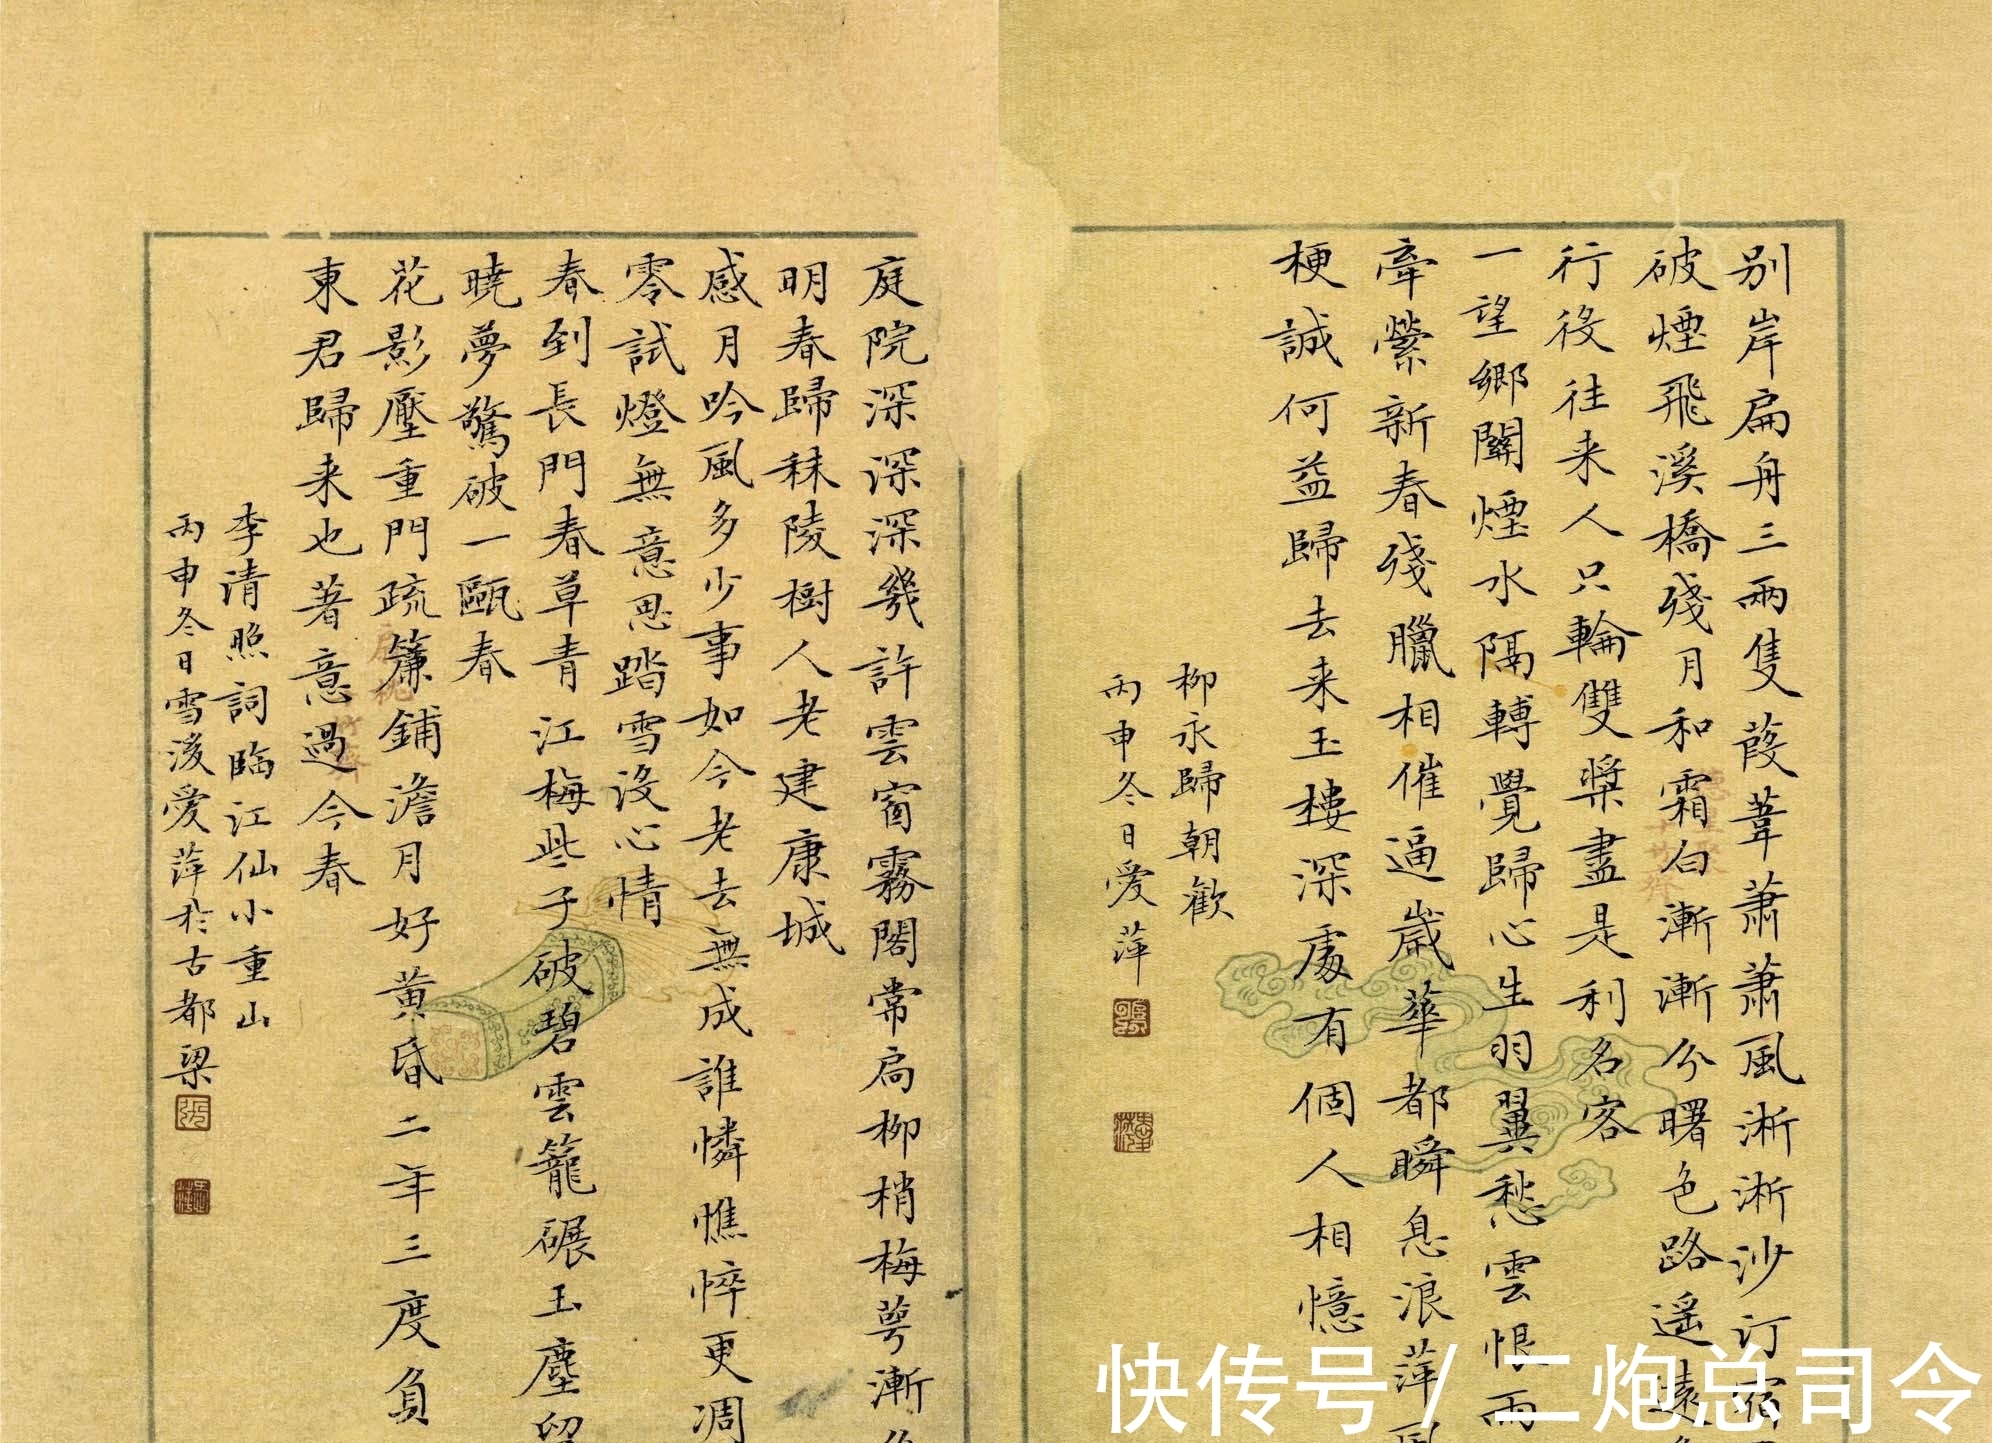 別岸扁舟三兩隻葭葦蕭蕭風淅淅沙汀宿
破煙飛溪橋殘月和霜白漸漸分曙色路遥遠
行役往来人只輪雙槳盡是利名客
一望鄉關煙水隔轉覺歸心生羽翼愁雲恨雨
牽縈新春殘臘相催逼歲華都瞬息浪萍風
梗誠何益歸去来玉樓深處有個人相憶
柳永歸朝歡
丙申冬日愛萍
庭院深深深幾許雲窗霧閣常扃柳梢梅萼漸
明春歸秣陵樹人老建康城
感月吟風多少事如今老去無成誰憐憔悴更凋
零試燈無意思踏雪没心情
春到長門春草青江梅些子破碧雲籠碾玉塵留
曉夢驚破一甌春
花影壓重門疏簾鋪澹月好黄昏二年三度負
東君歸来也著意過今春
李清照詞臨江仙小重山
丙申冬日雪後愛萍於古都梁
快传号/二炮总司令